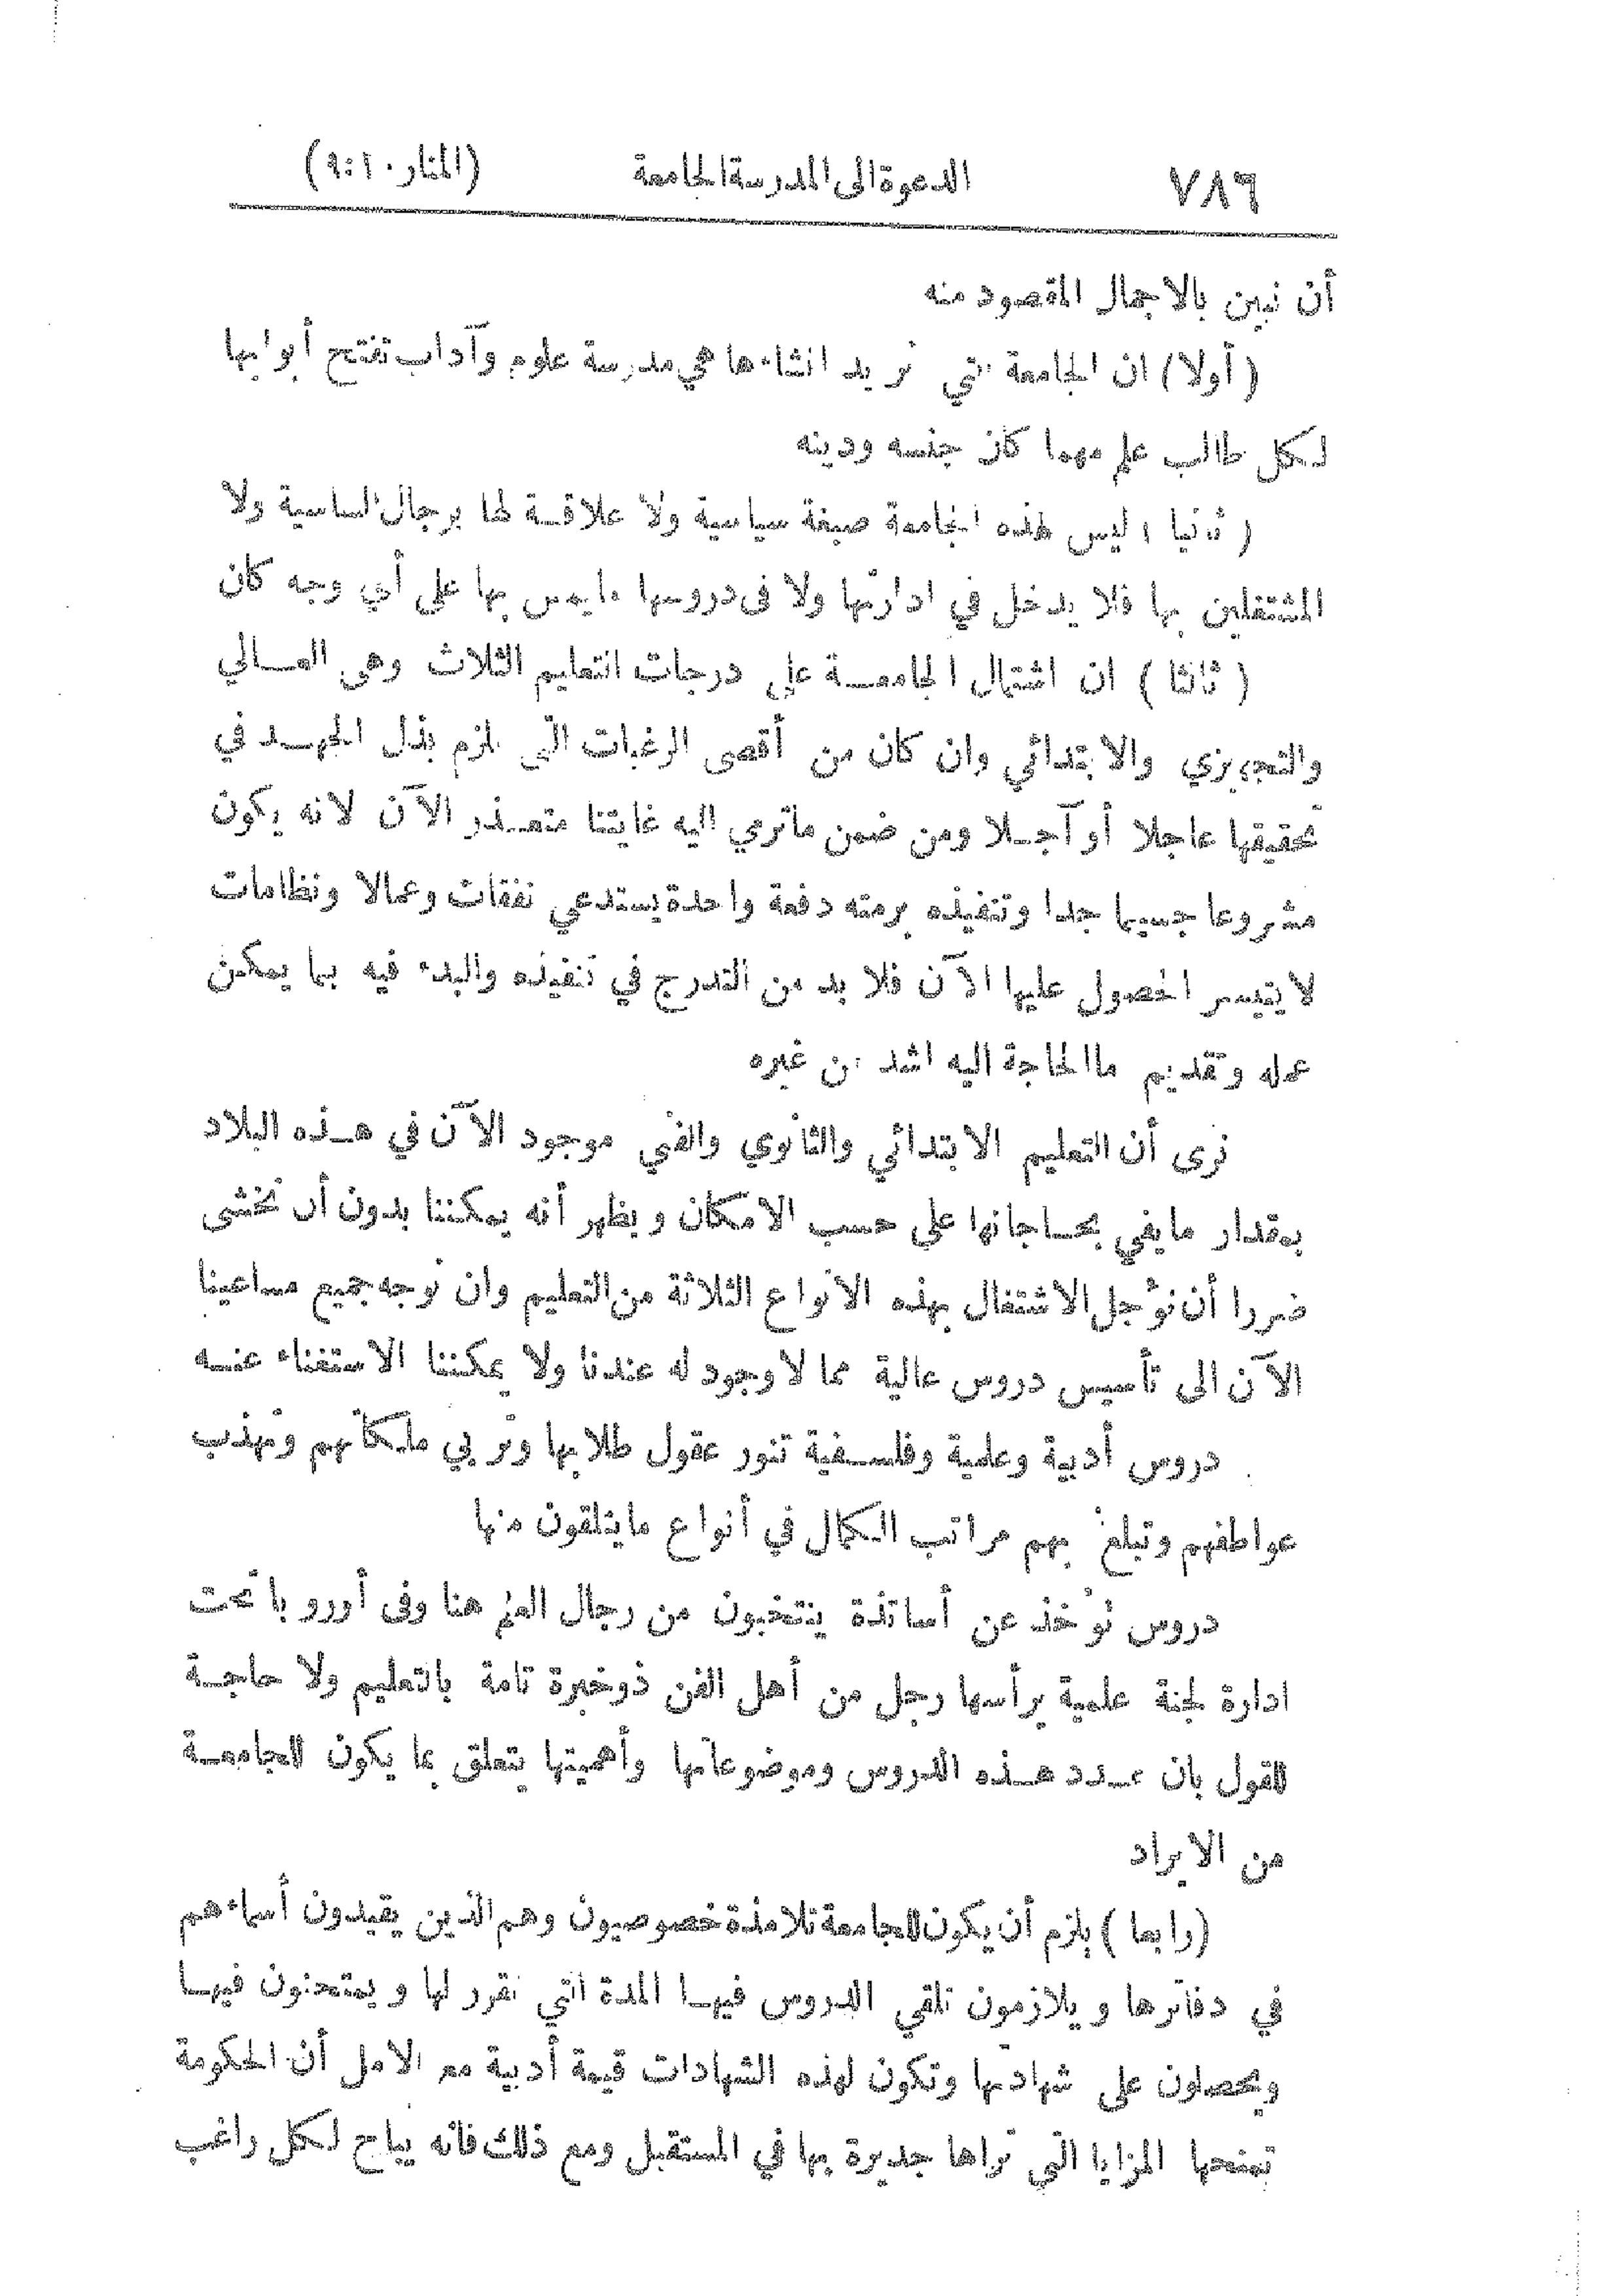 ٧٨٦ الدعوة الى المدرسة الجامعة (المنار ١٠:٩)
أن نبين بالاجمال المقصود منه
(أولا) ان الجامعة التي نريد انشاءها هي مدرسة علوم وآداب تفتح أبوابها
لكل طالب علم مهما كان جنسه ودينه
(ثانيا) ليس لهذه الجامعة صبغة سياسية ولا علاقة لها برجال الساسية ولا
المشتغلين بها فلا يدخل في ادارتها ولا فى دروسها مايمس بها على أي وجه كان
(ثالثا) ان اشتمال الجامعة على درجات التعليم الثلاث وهى العالي
والتجهيزي والابتدائي وان كان من أقصى الرغبات التي يلزم بذل الجهد في
تحقيقها عاجلا أو آجلا ومن ضمن ماترمي اليه غايتنا متعذر الآن لانه يكون
مشروعا جسيما جدا وتنفيذه برمته دفعة واحدة يستدعي نفقات وعمالا ونظامات
لا يتيسر الحصول عليها الآن فلا بد من التدرج في تنفيذه والبدء فيه بما يمكن
عمله وتقديم ماالحاجة اليه اشد من غيره
نرى أن التعليم الابتدائي والثانوي والفني موجود الآن في هذه البلاد
بمقدار مايفي بحاجاتها على حسب الامكان ويظهر أنه يمكننا بدون أن نخشى
ضررا أن نؤجل الاشتغال بهذه الانواع الثلاثة من التعليم وان نوجه جميع مساعينا
الآن الى تأسيس دروس عالية مما لا وجود له عندنا ولا يمكننا الاستغناء عنه
دروس أدبية وعلمية وفلسفية تنور عقول طلابها وتربي ملكاتهم وتهذب
عواطفهم وتبلغ بهم مراتب الكمال في أنواع مايتلقون منها
دروس تؤخذ عن أساتذة ينتخبون من رجال العلم هنا وفى أوروبا تحت
ادارة لجنة علمية يرأسها رجل من أهل الفن ذوخبرة تامة بالتعليم ولا حاجة
للقول بان عدد هذه الدروس وموضوعاتها وأهميتها يتعلق بما يكون للجامعة
من الايراد
(رابعا) يلزم أن يكون للجامعة تلامذة خصوصيون وهم الذين يقيدون أسماءهم
في دفاترها ويلازمون تلقي الدروس فيها المدة التي تقرر لها ويمتحنون فيها
ويحصلون على شهادتها وتكون لهذه الشهادات قيمة أدبية مع الامل أن الحكومة
تمنحها المزايا التي تراها جديرة بها في المستقبل ومع ذلك فانه يباح لكل راغب